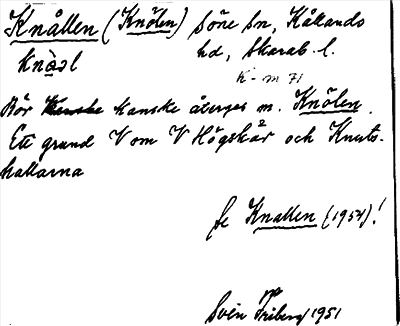 Knållen (Knölen) Söne sn, Kållands
Knå̀əl hd, Skarab. l.
K - m 71
Bör kanske återges m. Knölen.
Ett grund V om V Högskär och Knuts-
hallarna
Se Knallen (1954)!
Sven Friberg 1951